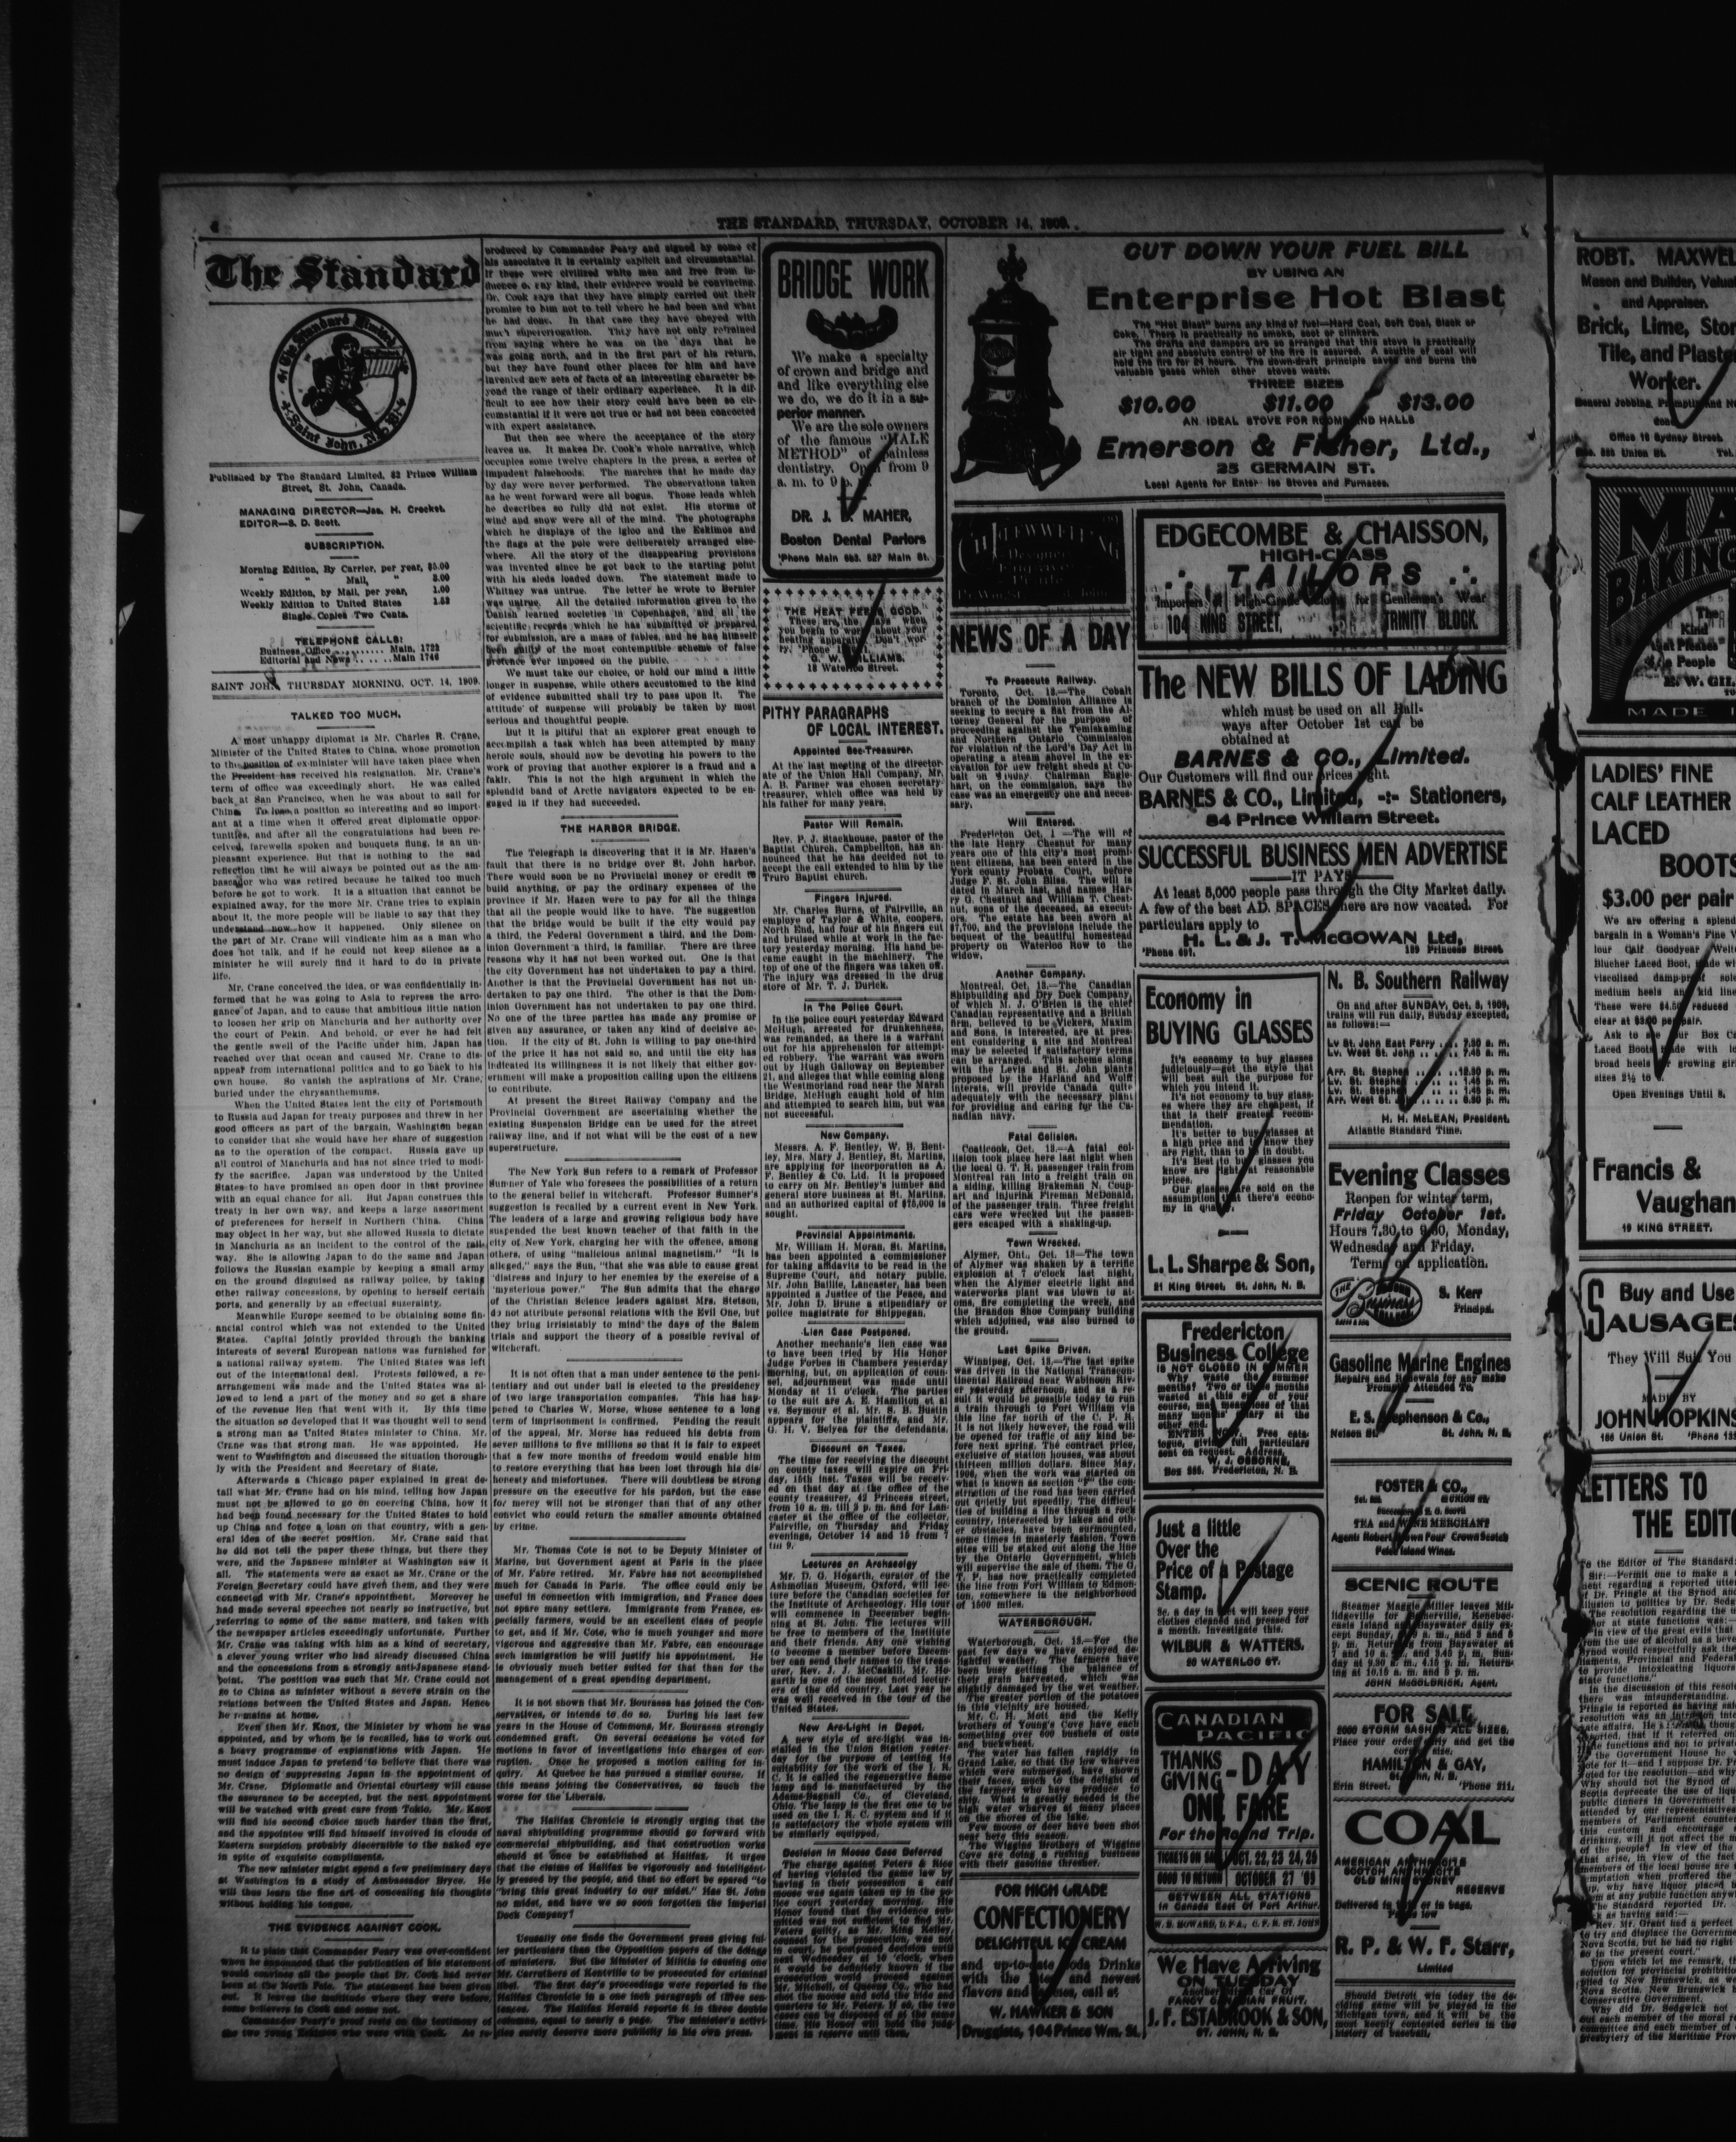 4
THE STANDARD, THURSDAY, OCTOBER 14, 1909.
The Standard
The Standard Limited
Saint John, N.B.
Published by The Standard Limited, 82 Prince William
Street, St. John, Canada.
MANAGING DIRECTOR—Jas. H. Crocket.
EDITOR—S. D. Scott.
SUBSCRIPTION.
Morning Edition, By Carrier, per year, $5.00
" " Mail, " 3.00
Weekly Edition, by Mail, per year, 1.00
Weekly Edition to United States 1.52
Single Copies Two Cents.
TELEPHONE CALLS:
Business Office .......... Main, 1722
Editorial and News .. .. ..Main 1746
SAINT JOHN, THURSDAY MORNING, OCT. 14, 1909.
TALKED TOO MUCH.
A most unhappy diplomat is Mr. Charles R. Crane,
Minister of the United States to China, whose promotion
to the position of ex-minister will have taken place when
the President has received his resignation. Mr. Crane's
term of office was exceedingly short. He was called
back at San Francisco, when he was about to sail for
China. To lose a position so interesting and so import-
ant at a time when it offered great diplomatic oppor-
tunities, and after all the congratulations had been re-
ceived, farewells spoken and bouquets flung, is an un-
pleasant experience. But that is nothing to the sad
reflection that he will always be pointed out as the am-
bassador who was retired because he talked too much
before he got to work. It is a situation that cannot be
explained away, for the more Mr. Crane tries to explain
about it, the more people will be liable to say that they
understand now how it happened. Only silence on
the part of Mr. Crane will vindicate him as a man who
does not talk, and if he could not keep silence as a
minister he will surely find it hard to do in private
life.
Mr. Crane conceived the idea, or was confidentially in-
formed that he was going to Asia to repress the arro-
gance of Japan, and to cause that ambitious little nation
to loosen her grip on Manchuria and her authority over
the court of Pekin. And behold, or ever he had felt
the gentle swell of the Pacific under him, Japan has
reached over that ocean and caused Mr. Crane to dis-
appear from international politics and to go back to his
own house. So vanish the aspirations of Mr. Crane,
buried under the chrysanthemums.
When the United States lent the city of Portsmouth
to Russia and Japan for treaty purposes and threw in her
good officers as part of the bargain, Washington began
to consider that she would have her share of suggestion
as to the operation of the compact. Russia gave up
all control of Manchuria and has not since tried to modi-
fy the sacrifice. Japan was understood by the United
States to have promised an open door in that province
with an equal chance for all. But Japan construes this
treaty in her own way, and keeps a large assortment
of preferences for herself in Northern China. China
may object in her way, but she allowed Russia to dictate
in Manchuria as an incident to the control of the rail-
way. She is allowing Japan to do the same and Japan
follows the Russian example by keeping a small army
on the ground disguised as railway police, by taking
other railway concessions, by opening to herself certain
ports, and generally by an effectual suzerainty.
Meanwhile Europe seemed to be obtaining some fin-
ancial control which was not extended to the United
States. Capital jointly provided through the banking
interests of several European nations was furnished for
a national railway system. The United States was left
out of the international deal. Protests followed, a re-
arrangement was made and the United States was al-
lowed to lend a part of the money and so get a share
of the revenue lien that went with it. By this time
the situation so developed that it was thought well to send
a strong man as United States minister to China. Mr.
Crane was that strong man. He was appointed. He
went to Washington and discussed the situation thorough-
ly with the President and Secretary of State.
Afterwards a Chicago paper explained in great de-
tail what Mr. Crane had on his mind, telling how Japan
must not be allowed to go on coercing China, how it
had been found necessary for the United States to hold
up China and force a loan on that country, with a gen-
eral idea of the secret position. Mr. Crane said that
he did not tell the paper these things, but there they
were, and the Japanese minister at Washington saw it
all. The statements were as exact as Mr. Crane or the
Foreign Secretary could have given them, and they were
connected with Mr. Crane's appointment. Moreover he
had made several speeches not nearly so instructive, but
referring to some of the same matters, and taken with
the newspaper articles exceedingly unfortunate. Further
Mr. Crane was taking with him as a kind of secretary,
a clever young writer who had already discussed China
and the concessions from a strongly anti-Japanese stand-
point. The position was such that Mr. Crane could not
go to China as minister without a severe strain on the
relations between the United States and Japan. Hence
he remains at home.
Even then Mr. Knox, the Minister by whom he was
appointed, and by whom he is recalled, has to work out
a heavy programme of explanations with Japan. He
must induce Japan to pretend to believe that there was
no design of suppressing Japan in the appointment of
Mr. Crane. Diplomatic and Oriental courtesy will cause
the assurance to be accepted, but the next appointment
will be watched with great care from Tokio. Mr. Knox
will find his second choice much harder than the first,
and the appointee will find himself involved in clouds of
Eastern suspicion probably discernible to the naked eye
in spite of exquisite compliments.
The new minister might spend a few preliminary days
at Washington in a study of Ambassador Bryce. He
will thus learn the fine art of concealing his thoughts
without holding his tongue.
THE EVIDENCE AGAINST COOK.
It is plain that Commander Peary was over-confident
when he announced that the publication of his statement
would convince all the people that Dr. Cook had never
been at the North Pole. The statement has been given
out. It leaves the multitude where they were before,
some believers in Cook and some not.
Commander Peary's proof rests on the testimony of
the two young Eskimos who were with Cook. As re-
produced by Commander Peary and signed by some of
his associates it is certainly explicit and circumstantial.
If these were civilized white men and free from in-
fluence of any kind, their evidence would be convincing.
Dr. Cook says that they have simply carried out their
promise to him not to tell where he had been and what
he had done. In that case they have obeyed with
much supererrogation. They have not only refrained
from saying where he was on the days that he
was going north, and in the first part of his return,
but they have found other places for him and have
invented new sets of facts of an interesting character be-
yond the range of their ordinary experience. It is dif-
ficult to see how their story could have been so cir-
cumstantial if it were not true or had not been concocted
with expert assistance.
But then see where the acceptance of the story
leaves us. It makes Dr. Cook's whole narrative, which
occupies some twelve chapters in the press, a series of
impudent falsehoods. The marches that he made day
by day were never performed. The observations taken
as he went forward were all bogus. Those leads which
he describes so fully did not exist. His storms of
wind and snow were all of the mind. The photographs
which he displays of the igloo and the Eskimos and
the flags at the pole were deliberately arranged else-
where. All the story of the disappearing provisions
was invented since he got back to the starting point
with his sleds loaded down. The statement made to
Whitney was untrue. The letter he wrote to Bernier
was untrue. All the detailed information given to the
Danish learned societies in Copenhagen, and all the
scientific records which he has submitted or prepared
for submission, are a mass of fables, and he has himself
been guilty of the most contemptible scheme of false
pretence ever imposed on the public.
We must take our choice, or hold our mind a little
longer in suspense, while others accustomed to the kind
of evidence submitted shall try to pass upon it. The
attitude of suspense will probably be taken by most
serious and thoughtful people.
But it is pitiful that an explorer great enough to
accomplish a task which has been attempted by many
heroic souls, should now be devoting his powers to the
work of proving that another explorer is a fraud and a
fakir. This is not the high argument in which the
splendid band of Arctic navigators expected to be en-
gaged in if they had succeeded.
THE HARBOR BRIDGE.
The Telegraph is discovering that it is Mr. Hazen's
fault that there is no bridge over St. John harbor.
There would soon be no Provincial money or credit to
build anything, or pay the ordinary expenses of the
province if Mr. Hazen were to pay for all the things
that all the people would like to have. The suggestion
that the bridge would be built if the city would pay
a third, the Federal Government a third, and the Dom-
inion Government a third, is familiar. There are three
reasons why it has not been worked out. One is that
the city Government has not undertaken to pay a third.
Another is that the Provincial Government has not un-
dertaken to pay one third. The other is that the Dom-
inion Government has not undertaken to pay one third.
No one of the three parties has made any promise or
given any assurance, or taken any kind of decisive ac-
tion. If the city of St. John is willing to pay one-third
of the price it has not said so, and until the city has
indicated its willingness it is not likely that either gov-
ernment will make a proposition calling upon the citizens
to contribute.
At present the Street Railway Company and the
Provincial Government are ascertaining whether the
existing Suspension Bridge can be used for the street
railway line, and if not what will be the cost of a new
superstructure.
The New York Sun refers to a remark of Professor
Sumner of Yale who foresees the possibilities of a return
to the general belief in witchcraft. Professor Sumner's
suggestion is recalled by a current event in New York.
The leaders of a large and growing religious body have
suspended the best known teacher of that faith in the
city of New York, charging her with the offence, among
others, of using "malicious animal magnetism." "It is
alleged," says the Sun, "that she was able to cause great
'distress and injury to her enemies by the exercise of a
'mysterious power." The Sun admits that the charge
of the Christian Science leaders against Mrs. Stetson,
do not attribute personal relations with the Evil One, but
they bring irrisistably to mind the days of the Salem
trials and support the theory of a possible revival of
witchcraft.
It is not often that a man under sentence to the peni-
tentiary and out under bail is elected to the presidency
of two large transportation companies. This has hap-
pened to Charles W. Morse, whose sentence to a long
term of imprisonment is confirmed. Pending the result
of the appeal, Mr. Morse has reduced his debts from
seven millions to five millions so that it is fair to expect
that a few more months of freedom would enable him
to restore everything that has been lost through his dis-
honesty and misfortunes. There will doubtless be strong
pressure on the executive for his pardon, but the case
for mercy will not be stronger than that of any other
convict who could return the smaller amounts obtained
by crime.
Mr. Thomas Cote is not to be Deputy Minister of
Marine, but Government agent at Paris in the place
of Mr. Fabre retired. Mr. Fabre has not accomplished
much for Canada in Paris. The office could only be
useful in connection with immigration, and France does
not spare many settlers. Immigrants from France, es-
pecially farmers, would be an excellent class of people
to get, and if Mr. Cote, who is much younger and more
vigorous and aggressive than Mr. Fabre, can encourage
such immigration he will justify his appointment. He
is obviously much better suited for that than for the
management of a great spending department.
It is not shown that Mr. Bourassa has joined the Con-
servatives, or intends to do so. During his last few
years in the House of Commons, Mr. Bourassa strongly
condemned graft. On several occasions he voted for
motions in favor of investigations into charges of cor-
ruption. Once he proposed a motion calling for in-
quiry. At Quebec he has pursued a similar course. If
this means joining the Conservatives, so much the
worse for the Liberals.
The Halifax Chronicle is strongly urging that the
naval shipbuilding programme should go forward with
commercial shipbuilding, and that construction works
should at once be established at Halifax. It urges
that the claims of Halifax be vigorously and intelligent-
ly pressed by the people, and that no effort be spared "to
"bring this great industry to our midst." Has St. John
no midst, and have we so soon forgotten the Imperial
Dock Company?
Usually one finds the Government press giving ful-
ler particulars than the Opposition papers of the doings
of ministers. But the Minister of Militia is causing one
Mr. Carruthers of Kentville to be prosecuted for criminal
libel. The first day's proceedings were reported in the
Halifax Chronicle in a one inch paragraph of three sen-
tences. The Halifax Herald reports it in three double
columns, equal to nearly a page. The minister's activi-
ties surely deserve more publicity in his own press.
BRIDGE WORK
We make a specialty
of crown and bridge and
and like everything else
we do, we do it in a su-
perior manner.
We are the sole owners
of the famous "HALE
METHOD" of painless
dentistry. Open from 9
a. m. to 9 p. m.
DR. J. D. MAHER,
Boston Dental Parlors
'Phone Main 683. 527 Main St.
THE HEAT FEELS GOOD.
These are the days when
you begin to worry about your
heating apparatus. Don't wor-
ry. 'Phone
G. W. WILLIAMS,
18 Waterloo Street.
PITHY PARAGRAPHS
OF LOCAL INTEREST.
Appointed Sec-Treasurer.
At the last meeting of the director-
ate of the Union Hall Company, Mr.
A. B. Farmer was chosen secretary-
treasurer, which office was held by
his father for many years.
Pastor Will Remain.
Rev. P. J. Stackhouse, pastor of the
Baptist Church, Campbellton, has an-
nounced that he has decided not to
accept the call extended to him by the
Truro Baptist church.
Fingers Injured.
Mr. Charles Burns, of Fairville, an
employe of Taylor & White, coopers,
North End, had four of his fingers cut
and bruised while at work in the fac-
tory yesterday morning. His hand be-
came caught in the machinery. The
top of one of the fingers was taken off.
The injury was dressed in the drug
store of Mr. T. J. Durick.
In The Police Court.
In the police court yesterday Edward
McHugh, arrested for drunkenness,
was remanded, as there is a warrant
out for his apprehension for attempt-
ed robbery. The warrant was sworn
out by Hugh Galloway on September
21, and alleges that while coming along
the Westmorland road near the Marsh
Bridge, McHugh caught hold of him
and attempted to search him, but was
not successful.
New Company.
Messrs. A. F. Bentley, W. B. Bent-
ley, Mrs. Mary J. Bentley, St. Martins,
are applying for incorporation as A.
F. Bentley & Co. Ltd. It is proposed
to carry on Mr. Bentley's lumber and
general store business at St. Martins,
and an authorized capital of $75,000 is
sought.
Provincial Appointments.
Mr. William H. Moran, St. Martins,
has been appointed a commissioner
for taking affidavits to be read in the
Supreme Court, and notary public.
Mr. John Baillie, Lancaster, has been
appointed a Justice of the Peace, and
Mr. John D. Brune a stipendiary or
police magistrate for Shippegan.
Lien Case Postponed.
Another mechanic's lien case was
to have been tried by His Honor
Judge Forbes in Chambers yesterday
morning, but, on application of coun-
sel, adjournment was made until
Monday at 11 o'clock. The parties
to the suit are A. E. Hamilton et al
vs. Seymour et al. Mr. S. B. Bustin
appears for the plaintiffs, and Mr.
G. H. V. Belyea for the defendants.
Discount on Taxes.
The time for receiving the discount
on county taxes will expire on Fri-
day, 15th inst. Taxes will be receiv-
ed on that day at the office of the
county treasurer, 42 Princess street,
from 10 a. m. till 3 p. m. and for Lan-
caster at the office of the collector,
Fairville, on Thursday and Friday
evenings, October 14 and 15 from 7
till 9.
Lectures on Archaeolgy
Mr. D. G. Hogarth, curator of the
Ashmolian Museum, Oxford, will lec-
ture before the Canadian societies for
the Institute of Archaeology. His tour
will commence in December begin-
ning at St. John. The lectures will
be free to members of the Institute
and their friends. Any one wishing
to become a member before Decem-
ber can send their names to the treas-
urer, Rev. J. J. McCaskill. Mr. Ho-
garth is one of the most noted lectur-
ers of the old country. Last year he
was well received in the tour of the
United States.
New Arc-Light in Depot.
A new style of arc-light was in-
stalled in the Union Station yester-
day for the purpose of testing its
suitability for the work of the I. R.
C. It is called the regenerative flame
lamp and is manufactured by the
Adams-Bagnall Co., of Cleveland,
Ohio. The lamp is the first one to be
used on the I. R. C. system and if it
is satisfactory the whole system will
be similarly equipped.
Decision in Moose Case Deferred
The charge against Peters & Rice
of having violated the game law by
having in their possession a calf
moose was again taken up in the po-
lice court yesterday morning. His
Honor found that the evidence sub-
mitted was not sufficient to find Mr.
Peters guilty, as Mr. King Kelley,
counsel for the prosecution, was not
in court, he postponed decision until
next Wednesday at 10 o'clock, when
it would be definitely known if the
prosecution would proceed against
Mr. Mitchell, of Queens Co., who had
shot the moose and sold the hide and
quarters to Mr. Peters. If so, the two
cases can be disposed of at the same
time. His Honor will hold the judg-
ment in reserve until then.
CUT DOWN YOUR FUEL BILL
BY USING AN
Enterprise Hot Blast
The "Hot Blast" burns any kind of fuel—Hard Coal, Soft Coal, Slack or
Coke. There is practically no smoke, soot or clinkers.
The drafts and dampers are so arranged that this stove is practically
air tight and absolute control of the fire is assured. A scuttle of coal will
hold the fire for 24 hours. The down-draft principle saves and burns the
valuable gases which other stoves waste.
THREE SIZES
$10.00 $11.00 $13.00
AN IDEAL STOVE FOR ROOMS AND HALLS
Emerson & Fisher, Ltd.,
25 GERMAIN ST.
Local Agents for Enterprise Stoves and Furnaces.
C. H. FLEWWELLING
Designer
Engraver
Printer
NEWS OF A DAY
To Prosecute Railway.
Toronto, Oct. 13.—The Cobalt
branch of the Dominion Alliance is
seeking to secure a fiat from the At-
torney General for the purpose of
proceeding against the Temiskaming
and Northern Ontario Commission
for violation of the Lord's Day Act in
operating a steam shovel in the ex-
cavation for new freight sheds at Co-
balt on Sunday. Chairman Engle-
hart, on the commission, says the
case was an emergency one and neces-
sary.
Will Entered.
Fredericton Oct. 1 —The will of
the late Henry Chesnut for many
years one of this city's most promi-
nent citizens, has been enterd in the
York county Probate Court, before
Judge F. St. John Bliss. The will is
dated in March last, and names Har-
ry G. Chestnut and William T. Chest-
nut, sons of the deceased, as execut-
ors. The estate has been sworn at
$7,700, and the provisions include the
bequest of the beautiful homestead
property on Waterloo Row to the
widow.
Another Company.
Montreal, Oct. 13.—The Canadian
Shipbuilding and Dry Dock Company,
of which M. J. O'Brien is the chief
Canadian representative and a British
firm, believed to be Vickers, Maxim
and Sons, is interested, are at pres-
ent considering a site and Montreal
may be selected if satisfactory terms
can be arranged. This scheme along
with the Levis and St. John plants
proposed by the Harland and Wolff
interests, will provide Canada quite
adequately with the necessary plant
for providing and caring for the Ca-
nadian navy.
Fatal Colision.
Coaticook, Oct. 13.—A fatal col-
lision took place here last night when
the local G. T. R. passenger train from
Montreal ran into a freight train on
a siding, killing Brakeman N. Coup-
art and injuring Fireman McDonald,
of the passenger train. Three freight
cars were wrecked but the passen-
gers escaped with a shaking-up.
Town Wrecked.
Alymer, Ont., Oct. 13—The town
of Alymer was shaken by a terrific
explosion at 7 o'clock last night,
when the Alymer electric light and
waterworks plant was blown to at-
oms, fire completing the wreck, and
the Brandon Shoe Company building
which adjoined, was also burned to
the ground.
Last Spike Driven.
Winnipeg, Oct. 13.—The last spike
was driven in the National Transcon-
tinental Railroad near Wabinoun Riv-
er yesterday afternoon, and as a re-
sult it would be possible today to run
a train through to Fort William via
this line far north of the C. P. R.
It is not likely however, the road will
be opened for traffic of any kind be-
fore next spring. The contract price,
exclusive of station houses, was about
thirteen million dollars. Since May,
1906, when the work was started on
what is known as section "F" the con-
struction of the road has been carried
out quietly but speedily. The difficul-
ties of building a line through a rock
country, intersected by lakes and oth-
er obstacles, have been surmounted,
some times in masterly fashion. Town
sites will be staked out along the line
by the Ontario Government, which
will supervise the sale of them. The G.
T. P. has now practically completed
the line from Fort William to Edmon-
ton, somewhere in the neighborhood
of 1500 miles.
WATERBOROUGH.
Waterborough, Oct. 13.—For the
past few days we have enjoyed de-
lightful weather. The farmers have
been busy getting the balance of
their grain harvested, which was
slightly damaged by the wet weather.
The greater portion of the potatoes
in this vicinity are housed.
Mr. C. H. Mott and the Kelly
brothers of Young's Cove have each
something over 600 bushels of oats
and buckwheat.
The water has fallen rapidly in
Grand Lake, so that the low wharves
which were submerged, have shown
their faces, much to the delight of
the farmers who have produce to
ship. What is greatly needed is the
high water wharves at many places
on the shores of the lake.
Few moose or deer have been shot
near here this season.
The Wiggins Brothers of Wiggins
Cove are doing a rushing business
with their gasoline thresher.
FOR HIGH GRADE
CONFECTIONERY
DELIGHTFUL ICE CREAM
and up-to-date Soda Drinks
with the latest and newest
flavors and fancies, call at
W. HAWKER & SON
Druggists, 104 Prince Wm. St.
EDGECOMBE & CHAISSON,
HIGH-CLASS
TAILORS
Importers of High-Grade Cloths for Gentlemen's Wear
104 KING STREET, TRINITY BLOCK
The NEW BILLS OF LADING
which must be used on all Rail-
ways after October 1st can be
obtained at
BARNES & CO., Limited.
Our Customers will find our prices right.
BARNES & CO., Limited, -:- Stationers,
84 Prince William Street.
SUCCESSFUL BUSINESS MEN ADVERTISE
IT PAYS
At least 5,000 people pass through the City Market daily.
A few of the best AD. SPACES there are now vacated. For
particulars apply to
H. L. & J. T. McGOWAN Ltd,
'Phone 697. 139 Princess Street.
Economy in
BUYING GLASSES
It's economy to buy glasses
judiciously—get the style that
will best suit the purpose for
which you intend it.
It's not economy to buy glass-
es where they are cheapest, if
that is their greatest recom-
mendation.
It's better to buy glasses at
a high price and to know they
are right, than to be in doubt.
It's Best to buy glasses you
know are right at reasonable
prices.
Our glasses are sold on the
assumption that there's econo-
my in quality.
L. L. Sharpe & Son,
21 King Street, St. John, N. B.
Fredericton
Business College
IS NOT CLOSED IN SUMMER
Why waste the summer
months? Two or three months
wasted at this end of your
course, may mean loss of that
many months' salary at the
other end.
ENTER NOW. Free cata-
logue, giving full particulars
sent on request. Address,
W. J. OSBORNE,
Fredericton, N. B.
Just a little
Over the
Price of a Postage
Stamp.
3c. a day in will keep your
clothes cleaned and pressed for
a month. Investigate this.
WILBUR & WATTERS.
20 WATERLOO ST.
CANADIAN
PACIFIC
THANKS
GIVING - DAY
ONE FARE
For the Round Trip.
TICKETS ON SALE OCT. 22, 23, 24, 25
GOOD TO RETURN OCTOBER 27 '09
BETWEEN ALL STATIONS
in Canada East Of Port Arthur.
W. B. HOWARD, D.P.A., C.P.R. ST. JOHN
We Have Arriving
ON TUESDAY
Another Car Of
FANCY CANADIAN FRUIT.
J. F. ESTABROOK & SON,
ST. JOHN, N. B.
N. B. Southern Railway
On and after SUNDAY, Oct. 3, 1909,
trains will run daily, Sunday excepted,
as follows:—
Lv St. John East Ferry .. 7.30 a. m.
Lv. West St. John .. .. .. 7.45 a. m.
Arr. St. Stephen .. .. ..12.30 p. m.
Lv. St. Stephen .. .. .. 1.45 p. m.
Lv. St. Stephen .. .. .. 1.45 p. m.
Arr. West St. .. .. .. 6.30 p. m.
H. H. McLEAN, President.
Atlantic Standard Time.
Evening Classes
Reopen for winter term,
Friday October 1st.
Hours 7.30 to 9.30, Monday,
Wednesday and Friday.
Terms on application.
S. Kerr
Principal.
Gasoline Marine Engines
Repairs and Renewals for any make
Promptly Attended To.
E. S. Stephenson & Co.,
Nelson St. St. John, N. B.
FOSTER & CO.,
TEA and WINE MERCHANT
Agents Robert Brown Four Crown Scotch
Pelee Island Wines.
SCENIC ROUTE
Steamer Maggie Miller leaves Mil-
lidgeville for Somerville, Kennebec-
casis Island and Bayswater daily ex-
cept Sunday, 9 a. m., and 3 and 5
p. m. Returning from Bayswater at
7 and 10 a. m. and 3.45 p. m. Sun-
day at 9.30 a. m., 4.15 p. m. Return-
ing at 10.15 a. m. and 5 p. m.
JOHN McGOLDRICK, Agent.
FOR SALE
2000 STORM SASHES ALL SIZES.
Place your order early and get the
correct size.
HAMILTON & GAY,
St. John, N. B.
Erin Street. 'Phone 211.
COAL
AMERICAN ANTHRACITE
SCOTCH ANTHRACITE
OLD MINE SYDNEY
RESERVE
Delivered in bulk or in bags.
Prices low
R. P. & W. F. Starr,
Limited
Should Detroit win today the de-
ciding game will be played in the
Michigan town, and it will be the
most keenly contested series in the
history of baseball.
ROBT. MAXWEL
Mason and Builder, Valuat
and Appraiser.
Brick, Lime, Ston
Tile, and Plaste
Worker.
General Jobbing Promptly and N
done
Office 16 Sydney Street.
Res. 385 Union St. Tel.
MA
BAKING
The
Kind
that Pleases
People
E. W. GIL
MADE I
LADIES' FINE
CALF LEATHER
LACED
BOOTS
$3.00 per pair
We are offering a splend
bargain in a Woman's Fine V
lour Calf Goodyear Welte
Blucher Laced Boot, made wit
viscolized damp-proof sole
medium heels and kid line
These were $4.50 reduced
clear at $3.00 per pair.
Ask to see our Box Ca
Laced Boots made with lo
broad heels for growing girl
sizes 2½ to
Open Evenings Until 8.
Francis &
Vaughan
19 KING STREET.
Buy and Use
SAUSAGES
They Will Suit You
MADE BY
JOHN HOPKINS
186 Union St. 'Phone 13
LETTERS TO
THE EDITO
To the Editor of The Standard:
Sir:—Permit one to make a
ment regarding a reported utter
of Dr. Pringle at the Synod and
lusion to politics by Dr. Sedg
The resolution regarding the
or at state functions was:—
"In view of the great evils that
from the use of alcohol as a beve
Synod would respectfully ask the
liaments, Provincial and Federal
to provide intoxicating liquors
State functions."
In the discussion of this resol
there was misunderstanding.
Pringle is reported as having said
resolution was an intrusion into
ate affairs.